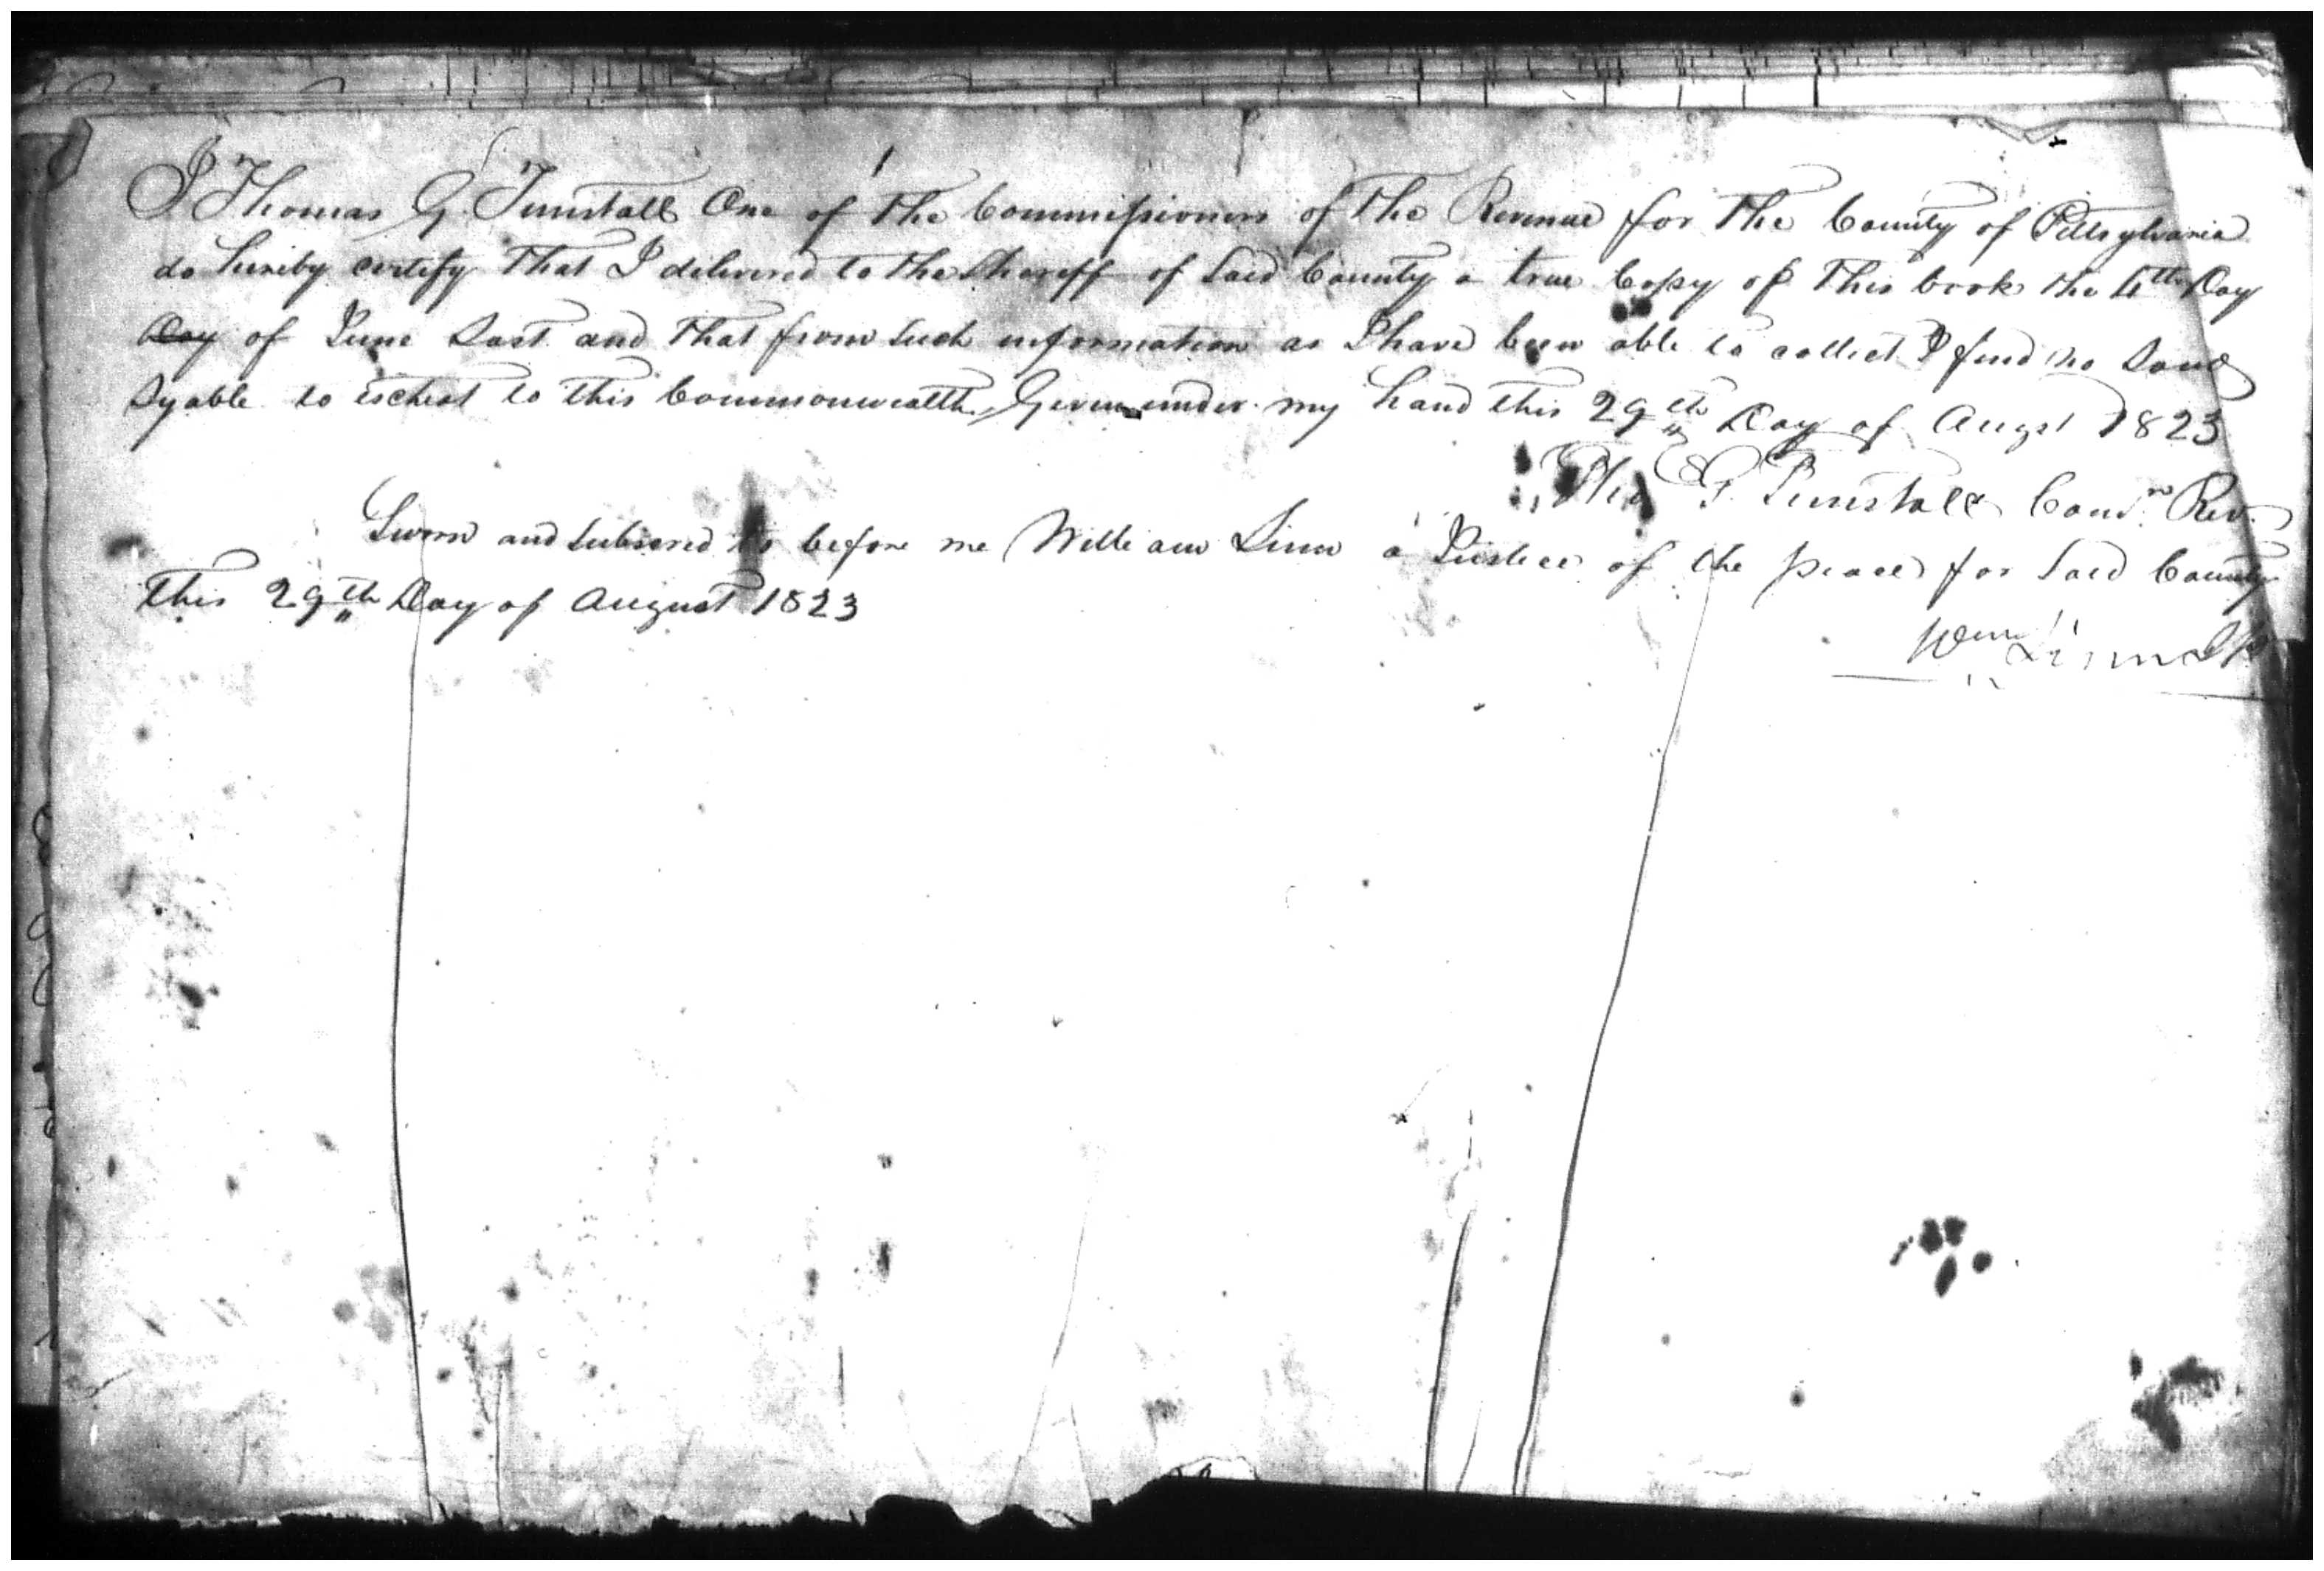 I Thomas G. Tunstall One of the Commissioners of the Revenue for the County of Pittsylvania
do hereby certify that I delivered to the Shereff of Said County a true Copy of this book the 4th Day
Day of June Last and that from Such information as I have been able to collect I find no Land
Lyable to escheat to this Commonwealth, Given under my hand this 29th Day of Augst 1823
Tho G. Tunstall Comr. Rev.
Sworn and Subscred to before me William Linn a Justice of the peace for Said County
this 29th Day of August 1823
Wm Linn JP